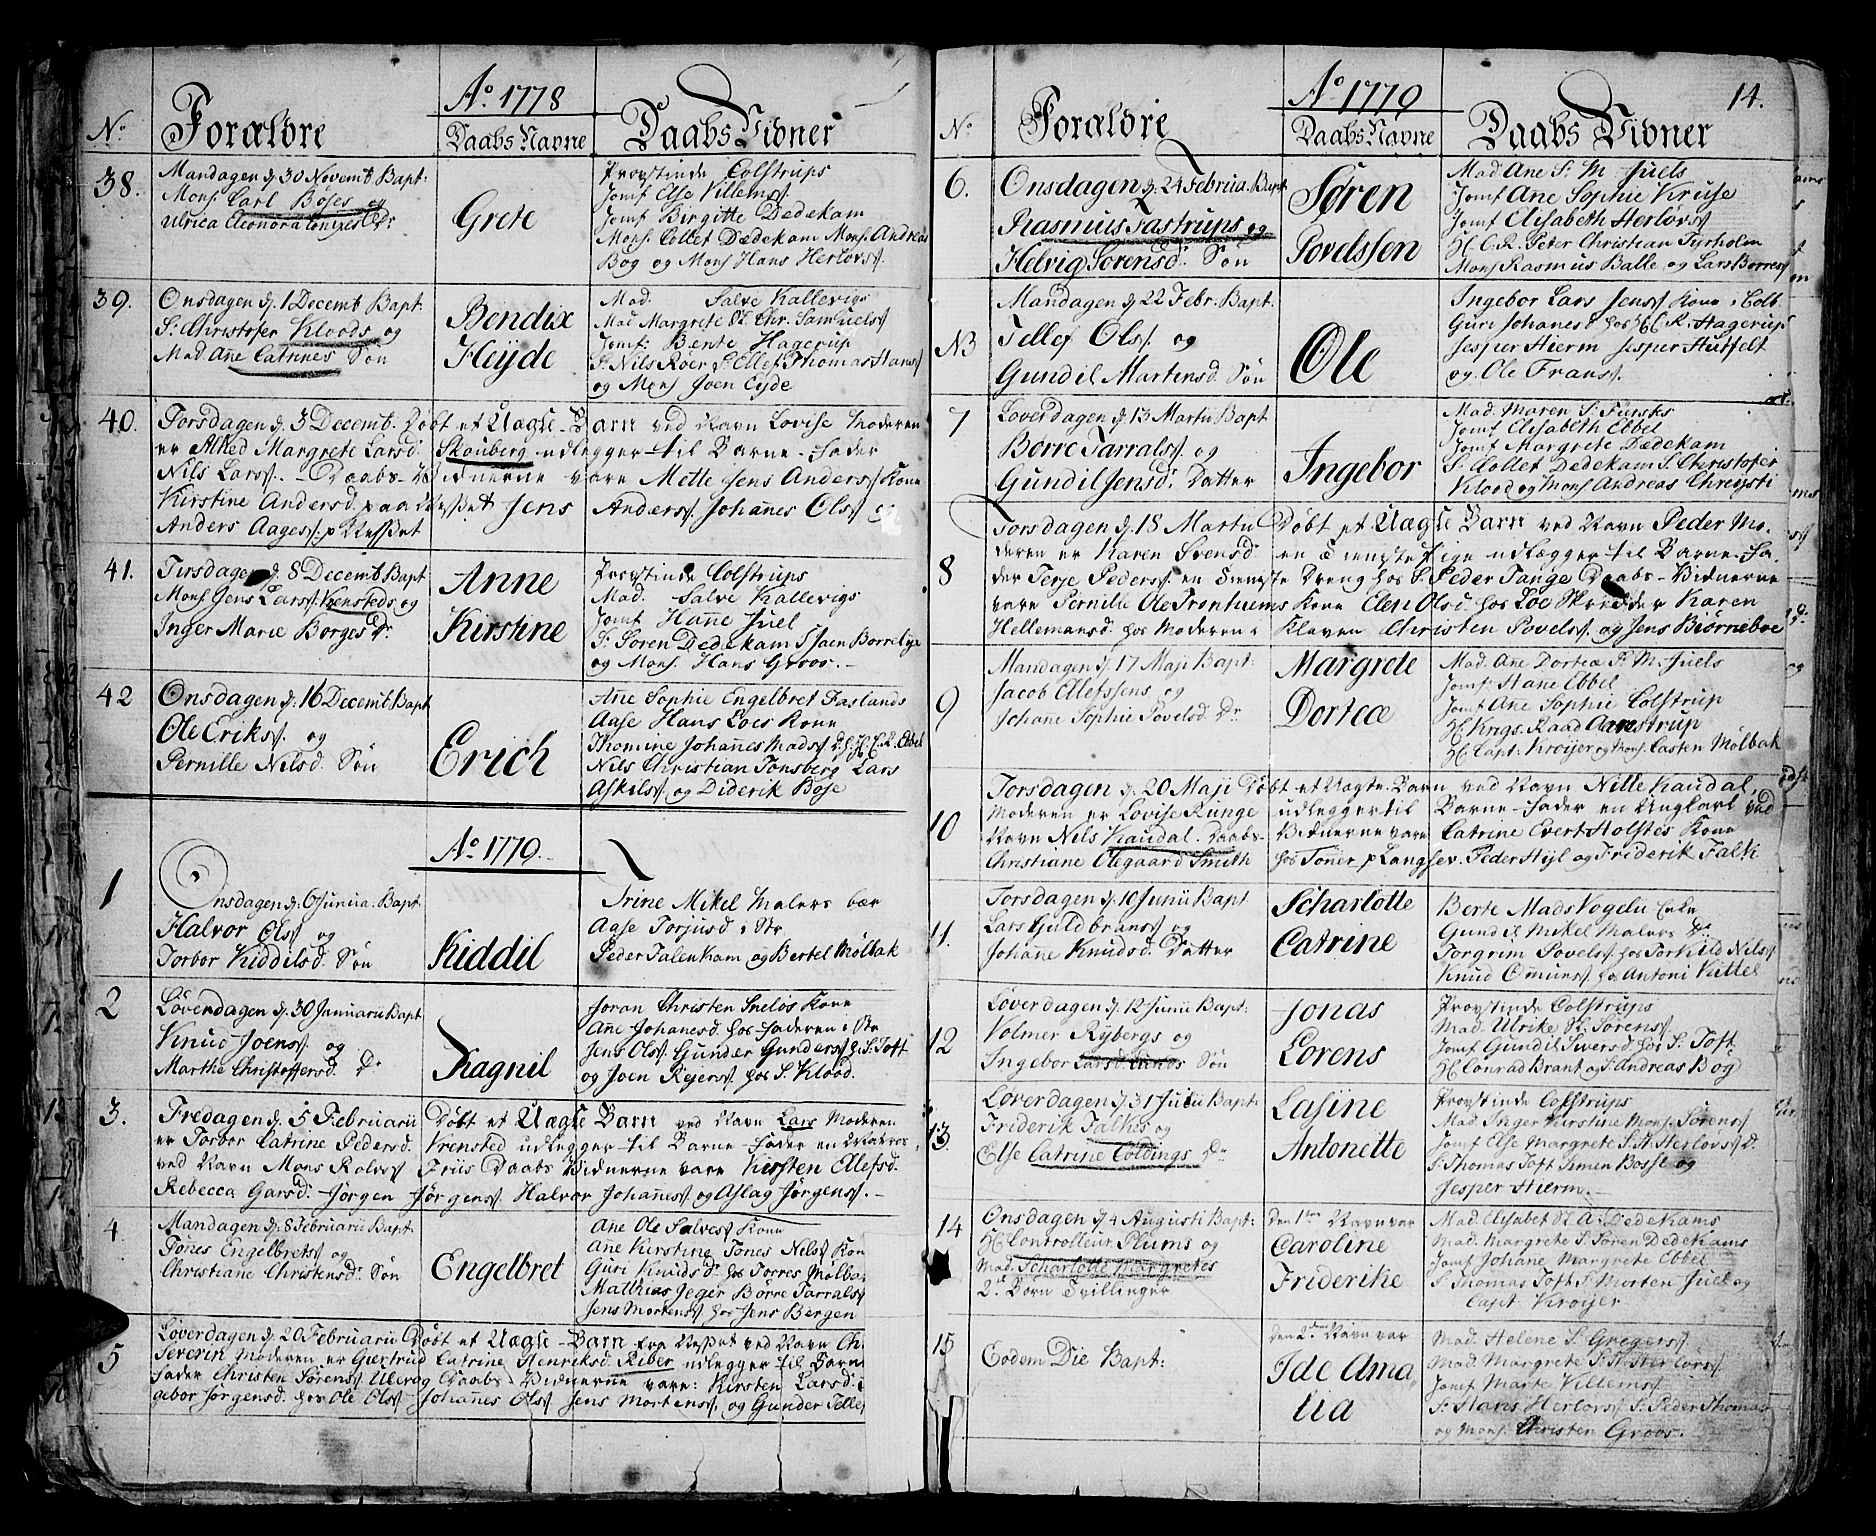 Ao. 1778
No. Forældre Daabs Navne Daabs Vidner
38. Mandagen d. 30 Novemb. Bapt:
Mons. Carl Boses og
Ulrica Eleonora Donges Dr.
Grete
Provstinde Colstrups
Jomf Else Villems
Jomf Birgitte Dedekam
Mons. Collet Dædekam Mons. Andreas
Bog og Mons Hans Herlovs.
39. Onsdagen d. 1 Decemb Bapt:
S. Christofer Kloods og
Mad Ane Catrines Søn
Bendix
Heyde
Mad. Salve Kallevigs
Mad Margrete St. Chr. Samuels
Jomf. Bente Hagerup
S. Nils Røer S. Ellef Thomas Hans
og Mons Joen Eyde
40. Torsdagen d. 3 Decemb. Døbt et Uægte-Barn ved Navn Lovise Moderen
er Alhed Margrete Larsd. Skouberg udlegger til Barne-Fader
Nils Lars. - Daabs-Vidnerne vare Mette Jens Anders Kone
Kirstine Andersd. paa Næsset Jens Anders. Johanes Ols og
Anders Aages. p Næsset
41. Tirsdagen d. 8 Decemb Bapt
Mons Jens Lars. Krensteds og
Inger Marie Borges Dr
Anne
Kirstine
Provstinde Colstrups
Mad. Salve Kallevigs
Jomf Hane Juel
S. Søren Dedekam S Jaen Borrelye
og Mons. Hans Groos.-
42 Onsdagen d. 16 Decemb Bapt
Ole Eriks. og
Pernille Nilsd. Søn
Erich
Ane Sophie Engelbret Faslands
Aase Hans Loes Kone
Thomine Johanes Mads D. H. C. R. Ebbel
Nils Christian Tonsberg Lars
Askels og Diderik Bose
Ao. 1779.
1 Onsdagen d. 6 Junua. Bapt.
Halvor Ols og
Torbor Kiddilsd. Søn
Kiddil
Trine Mikel Malers bær
Aase Torjusd i Str
Peder Talenham og Bertel Mølbak
2 Løverdagen d. 30 Januarii Bapt
Knud Joens og
Marthe Christoffersd. Dr
Ragnil
Joran Christen Snelos Kone
Ane Johanesd. hos Faderen i Str
Jens Ols. Gunder Gunders h. S. Toft
og Joen Rejers. hos S. Klood.
3. Fredagen d. 5 Februarii Døbt et Uægte Barn ved Navn Lars Moderen
er Torbor Catrine Pedersd. Krensted udlegger til Barne-Fader en Matros
ved Navn Mons Rolvs Friis Daabs Vidnerne vare Kirsten Ellefsd.
Rebecca Garsd. Jørgen Jørgens. Halvor Johanes. og Aslag Jørgens. -
4. Mandagen d. 8 Februarii Bapt
Tønes Engelbrets og
Christiane Christensd. Søn
Engelbret
Ane Ole Salves Kone
Ane Kirstine Tønes Nils Kon
Guri Knudsd. hos Torres Mølba
Matthias Jeger Børre Tarrals
Jens Mortens hos Jens Bergen
5 Løverdagen d. 20 Februarii Døbt et Uægte-Barn fra Næsset ved Navn Ch
Severin Moderen er Giertrud Catrine Henriksd. Riber udlegger til Barn
Fader Christen Sørens Ulerog Daabs-Vidnerne vare: Kirsten Larsd:
gebor Jørgensd. hos Ole Ols Johanes Ols Jens Mortens. og Gunder Telle
Ao 1779 14.
No Forældre Daabs Navne Daabs Vidner
6. Onsdagen d. 24 Februa. Bapt
Rasmus Tastrups og
Helvig Sørensd. Søn
Søren
Povelssen
Mad Ane S. M. Juels
Jomf Ane Sophie Kruse
Jomf Elisabeth Herlovs
H. C. R. Peter Christian Tyrholm
Mons Rasmus Balle og Lars Borres
NB Mandagen d. 22 Febr. Bapt:
Tellef Ols. og
Gundil Martensd. Søn
Ole
Ingebor Lars Jens Kone i Colb
Guri Johanesd hos H. C. R. Hagerup
Jesper Hierm Jesper Hutfelt
og. Ole Frans.
7 Løverdagen d. 13 Martii Bapt
Børre Tarrals. og
Gundil Jensd. Datter
Ingebor
Mad. Maren S. Fürsts
Jomf Elisabeth Ebbel
Jomf Margrete Dædekam
S. Collet Dedekam S. Christofer
Klood og Mons Andreas Chrysti
8 Torsdagen d. 18 Martii Døbt et Uægte Barn ved Navn Peder Mo-
deren er Karen Svensd. en Tienste Pige udlægger til Barne-Fa-
der Terje Peders. en Tienste Dreng hos S. Peder Tange Daabs-Vidnerne
vare Pernille Ole Trontiems Kone Elen Olsd. hos Loe Skrædder Karen
Hellemansd. hos Moderen i Kleven Christen Povels. og Jens Biørneboe
9 Mandagen d. 17 Maji Bapt:
Jacob Ellefssens og
Johane Sophie Povelsd. Dr
Margrete
Dorteæ
Mad. Ane Dorteæ S. M. Juels
Jomf. Hane Ebbel
Jomf Ane Sophie Colstrup
H. Krigs-Raad Aarestrup
H. Capt. Kroyer og Mons. Casten Mølbak
10 Torsdagen d. 20 Maji Døbt et Uægte Barn ved Navn Nille Kaudal,
Moderen er Lovise Runge udlegger til Barne-Fader en Ungkarl ved
Navn Nils Kaudal. Daabs-Vidnerne vare Catrine Evert Holstes Kone
Christiane Olegaard Smith hos Toner p Langsev. Peder Hyl og Friderik Falk
11. Torsdagen d. 10 Junii Bapt
Lars Guldbrans og
Johane Knudsd. Datter
Scharlotte
Catrine
Berte Mads Vogelii Enke
Gundil Mikel Malers Dr.
Torgrim Povels. hos Torkild Nils
Knud Omuns hos Antoni Kittel
12 Løverdagen d. 12 Junii Bapt:
Volmer Rybergs og
Ingebor Larsd. Lunds Søn
Jonas
Lorens
Provstinde Colstrups
Mad. Ulrike St. Sørens.
Jomf Gundil Siversd hos S. Toft
H. Conrad Brant og S. Andreas Bog
13. Løverdagen d. 31 Julii Bapt:
Friderik Falkes og
Else Catrine Coldings Dr
Lasine
Antonette
Provstinde Colstrups
Mad. Inger Kirstine Mons. Sørens
Jomf. Else Margrete S. H. Herlovs Dr.
S. Thomas Toft Simen Bosse og
Jesper Hierm. -
14 Onsdagen d. 4 Augusti Bapt:
H. Controlleur Plums og
Mad. Scharlotte Margretes
2de Børn Tvillinger
Den 1ste Navn var
Caroline
Friderike
Mad. Elisabet St. A. Dedekams
Mad. Margrete S. Søren Dedekams
Jomf Johane Margrete Ebbel
S. Thomas Toft S. Morten Juel og
Capt Kroijer
15 Eodem Die Bapt:
Den 2den Navn var
Ide Ama
lia
Mad. Helene S. Gregers
Mad. Margrete S. H. Herlovs.
Jomf Marte Villems
S. Hans Herlovs S. Peder Thomas
og Mons. Christen Groos.